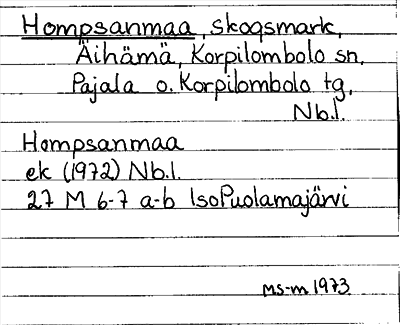 Hompsanmaa, skogsmark,
Äihämä, Korpilombolo sn,
Pajala o. Korpilombolo tg,
Nb.l.
Hompsanmaa
ek (1972) Nb.l.
27 M 6-7 a-b IsoPuolamajärvi
ms-m 1973